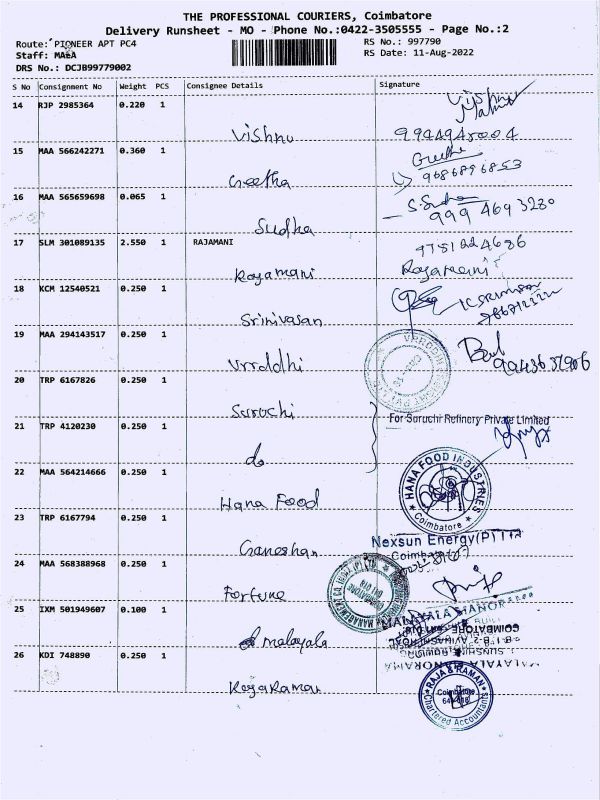 THE PROFESSIONAL COURIERS, Coimbatore
Delivery Runsheet - MO - Phone No.:0422-3505555 - Page No.:2
Route: PIONEER APT PC4 RS No.: 997790
Staff: MA6A RS Date: 11-Aug-2022
DRS No.: DCJB99779002
S No Consignment No Weight PCS Consignee Details Signature
14 RJP 2985364 0.220 1
Vishnu
15 MAA 566242271 0.360 1
Geetha 9686896853
16 MAA 565659698 0.065 1
Sudha
17 SLM 301089135 2.550 1 RAJAMANI 9751224636
Rajamani Rajamani
18 KCM 12540521 0.250 1
Srinivasan
19 MAA 294143517 0.250 1
Vrrddhi
20 TRP 6167826 0.250 1
Suruchi
21 TRP 4120230 0.250 1 For Suruchi Refinery Private Limited
do
22 MAA 564214666 0.250 1
Hana Food HANA FOOD INDUSTRIES
Coimbatore
23 TRP 6167794 0.250 1
Ganeshan Nexsun Energy (P) Ltd
Coimbatore
24 MAA 568388968 0.250 1
Fortune
25 IXM 501949607 0.100 1 MALAYALA MANORAMA
malayala COIMBATORE
MALAYALA MANORAMA
26 KDI 748890 0.250 1
Rajaraman RAJA & RAMAN
Coimbatore
Chartered Accountants